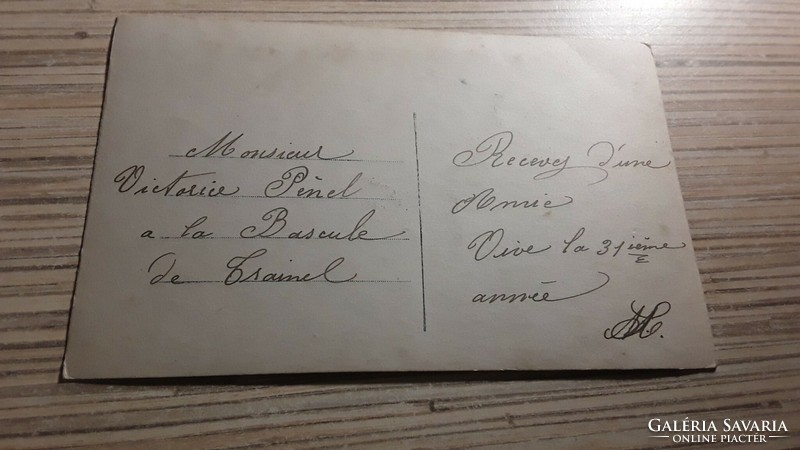 Monsieur
Victorice Pênel
a la Bascule
de Trainel
Recevez d'une
Amie
Vive la 31ième
année
GALÉRIA SAVARIA
ONLINE PIACTÉR